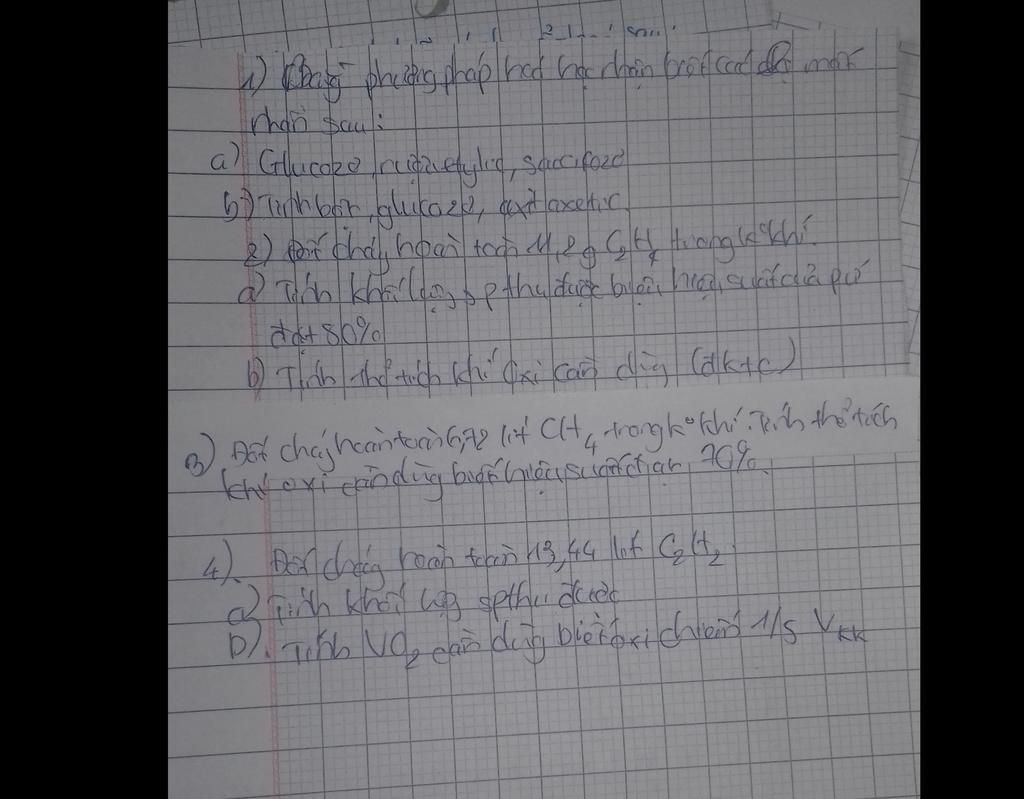 1) Bằng phương pháp hoá học nhận biết các dd mất
nhãn sau:
a) Glucozo, rượu etylic, saccarozo
b) Tinh bột, glucozo, axit axetic
2) Đốt cháy hoàn toàn 11,2g C2H4 trong k° khí.
a) Tính khối lượng sp thu được biết hiệu suất của pứ
đạt 80%
b) Tính thể tích khí Oxi cần dùng (đktc)
3) Đốt cháy hoàn toàn 6,72 lít CH4 trong k° khí. Tính thể tích
khí oxi cần dùng biết hiệu suất đạt 70%.
4). Đốt cháy hoàn toàn 13,44 lít C2H2.
a) Tính khối lượng sp thu được
b). Tính VO2 cần dùng biết oxi chiếm 1/5 VKK